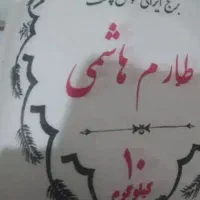 برنج ایرانی خوش پخت
طارم هاشمی
۱۰
کیلوگرم